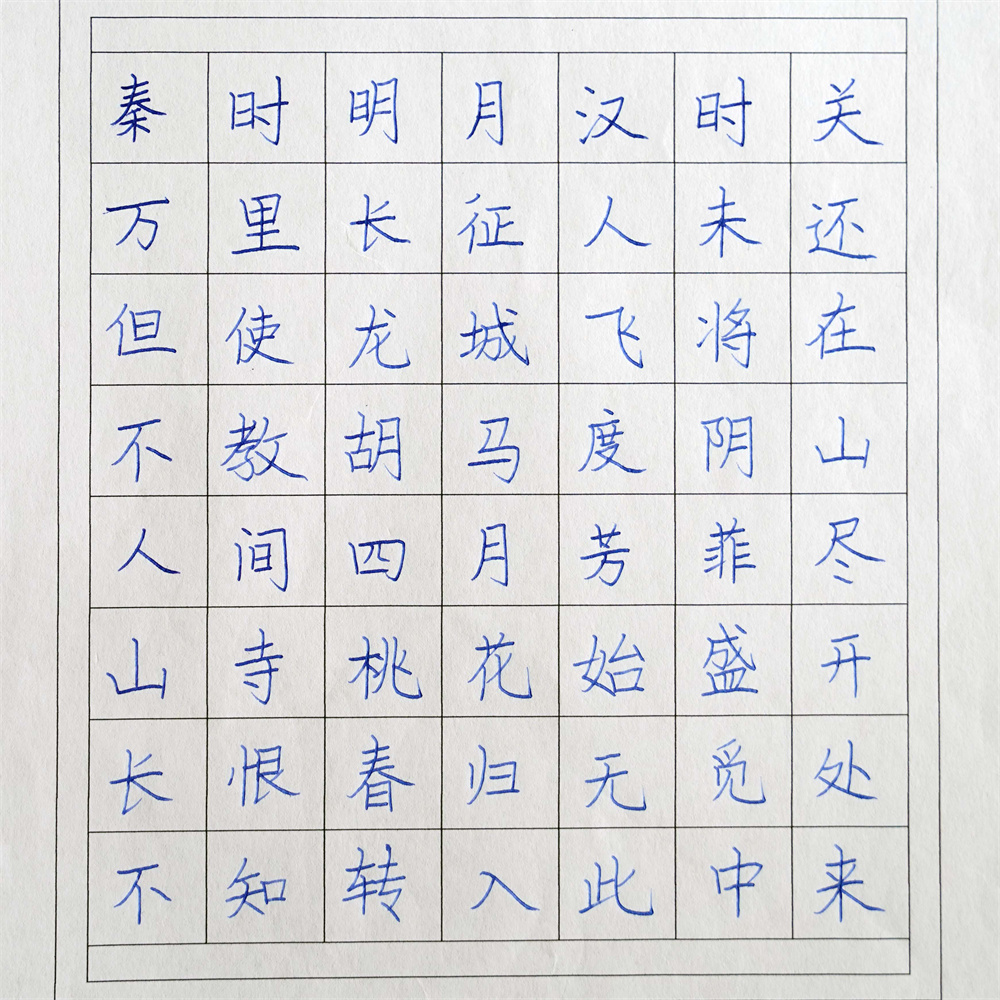 秦时明月汉时关
万里长征人未还
但使龙城飞将在
不教胡马度阴山
人间四月芳菲尽
山寺桃花始盛开
长恨春归无觅处
不知转入此中来